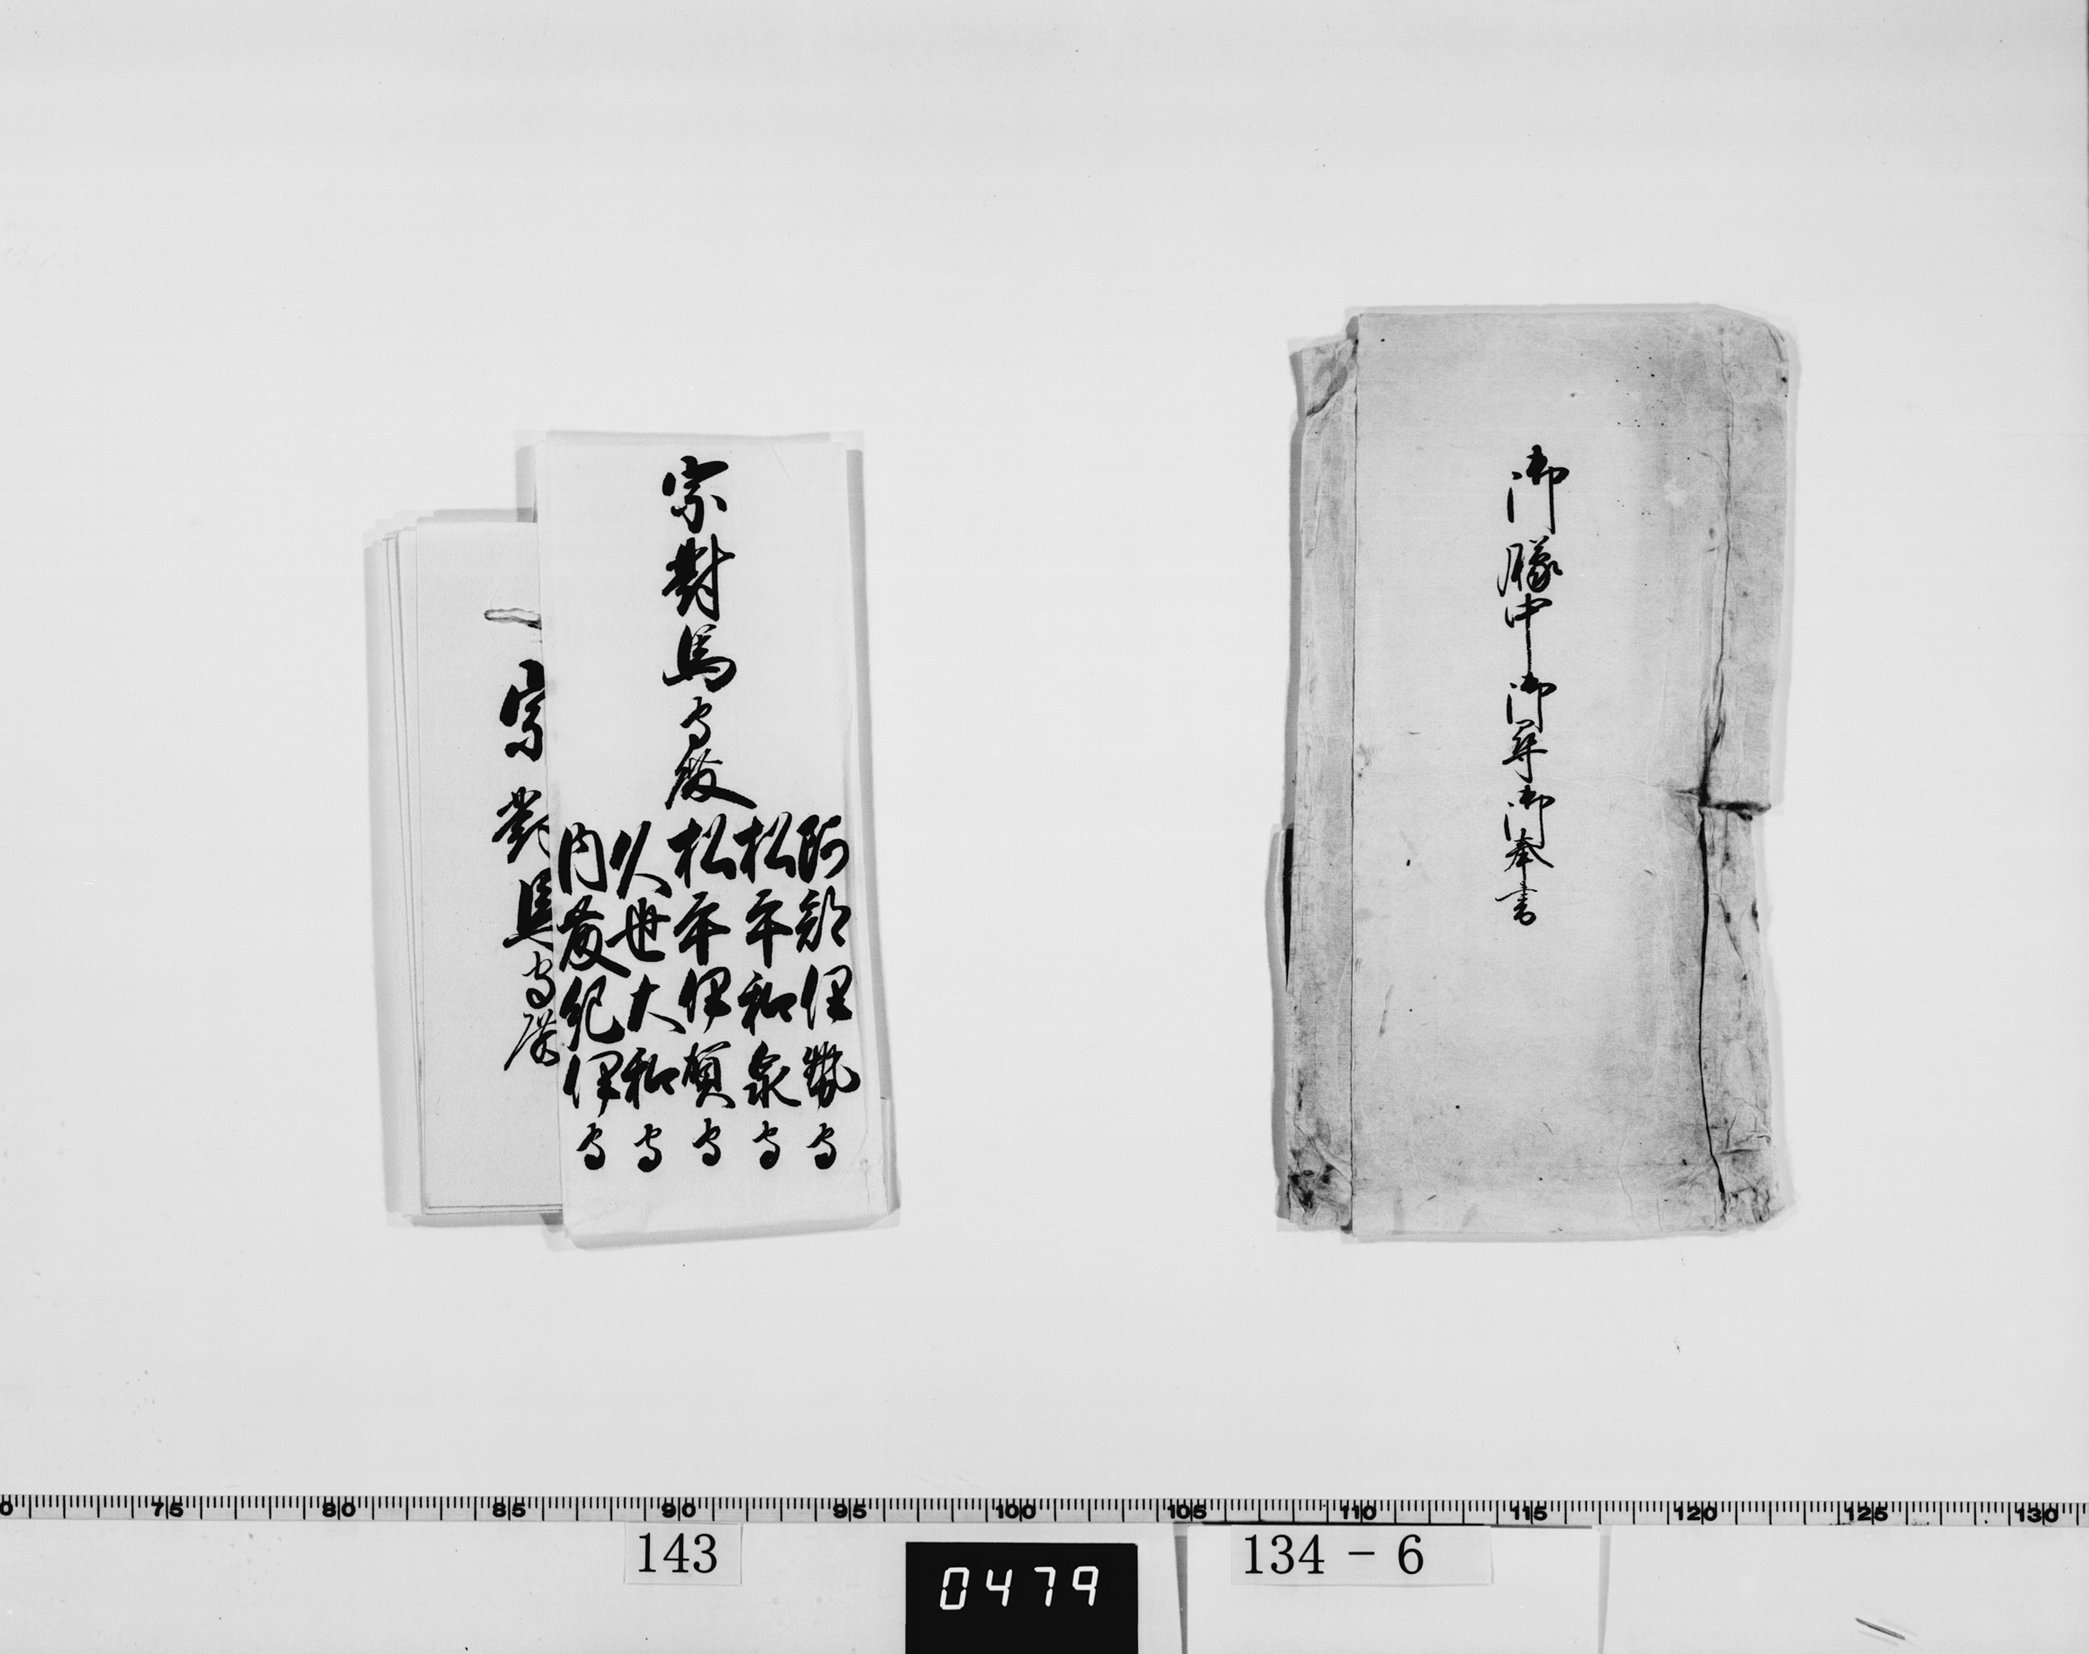 御朦中御尋御奉書
宗對馬守殿
阿部伊勢守
松平和泉守
松平伊賀守
久世大和守
内藤紀伊守
宗對馬守様
75 80 85 90 95 100 105 110 115 120 125 130
143
0479
134-6